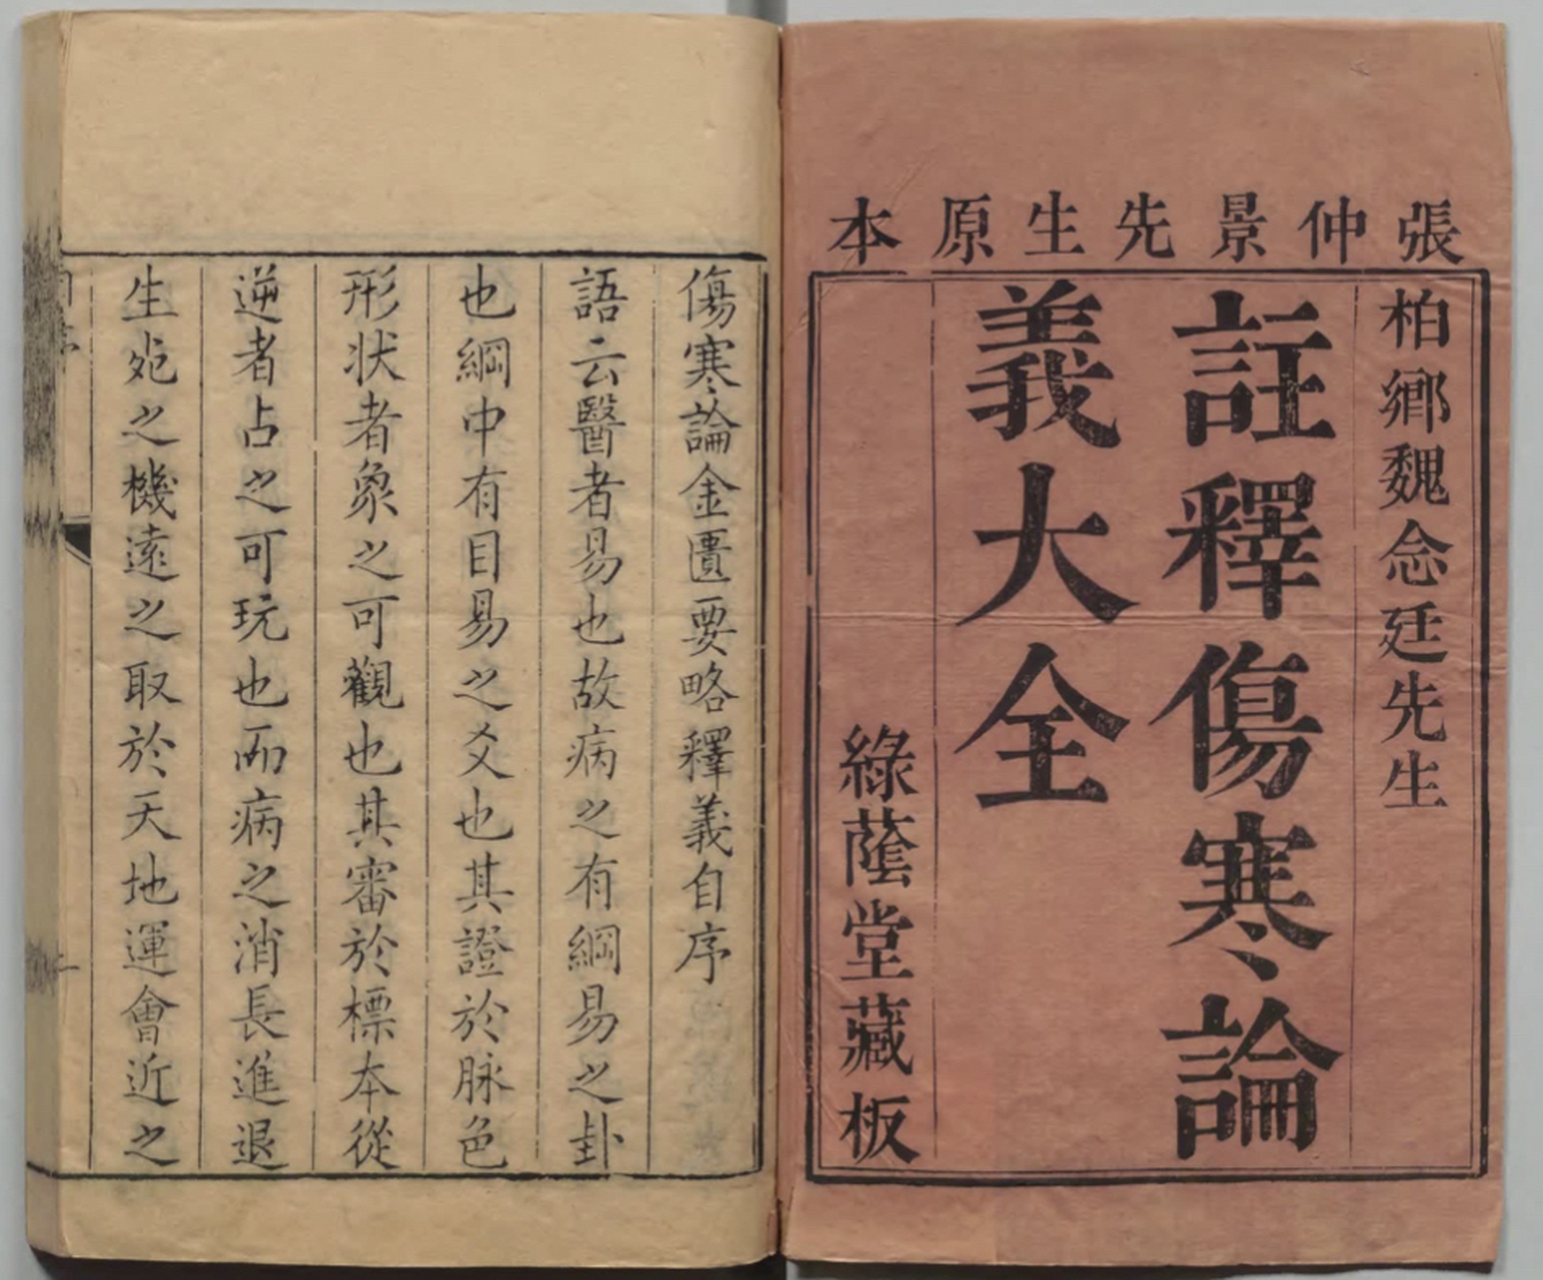 張仲景先生原本
柏鄉魏念廷先生
註釋傷寒論
義大全
綠蔭堂藏板
傷寒論金匱要略釋義自序
語云醫者易也故病之有綱易之卦
也綱中有目易之爻也其證於脉色
形狀者象之可觀也其審於標本從
逆者占之可玩也而病之消長進退
生死之機遠之取於天地運會近之